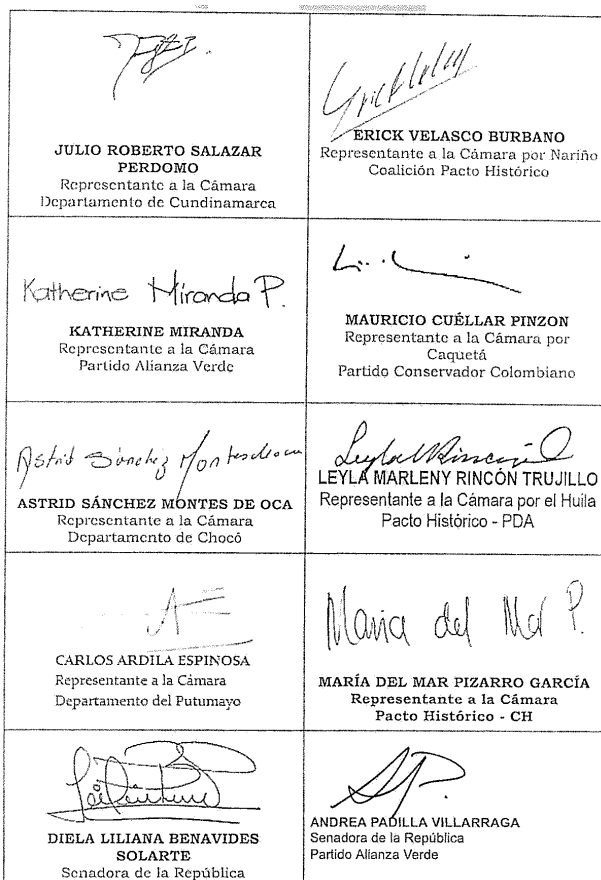 JULIO ROBERTO SALAZAR
PERDOMO
Representante a la Cámara
Departamento de Cundinamarca
ERICK VELASCO BURBANO
Representante a la Cámara por Nariño
Coalición Pacto Histórico
Katherine Miranda P.
KATHERINE MIRANDA
Representante a la Cámara
Partido Alianza Verde
MAURICIO CUÉLLAR PINZON
Representante a la Cámara por
Caquetá
Partido Conservador Colombiano
Astrid Sánchez Montesdeoca
ASTRID SÁNCHEZ MONTES DE OCA
Representante a la Cámara
Departamento de Chocó
LEYLA MARLENY RINCÓN TRUJILLO
Representante a la Cámara por el Huila
Pacto Histórico - PDA
CARLOS ARDILA ESPINOSA
Representante a la Cámara
Departamento del Putumayo
Maria del Mar P.
MARÍA DEL MAR PIZARRO GARCÍA
Representante a la Cámara
Pacto Histórico - CH
DIELA LILIANA BENAVIDES
SOLARTE
Senadora de la República
ANDREA PADILLA VILLARRAGA
Senadora de la República
Partido Alianza Verde